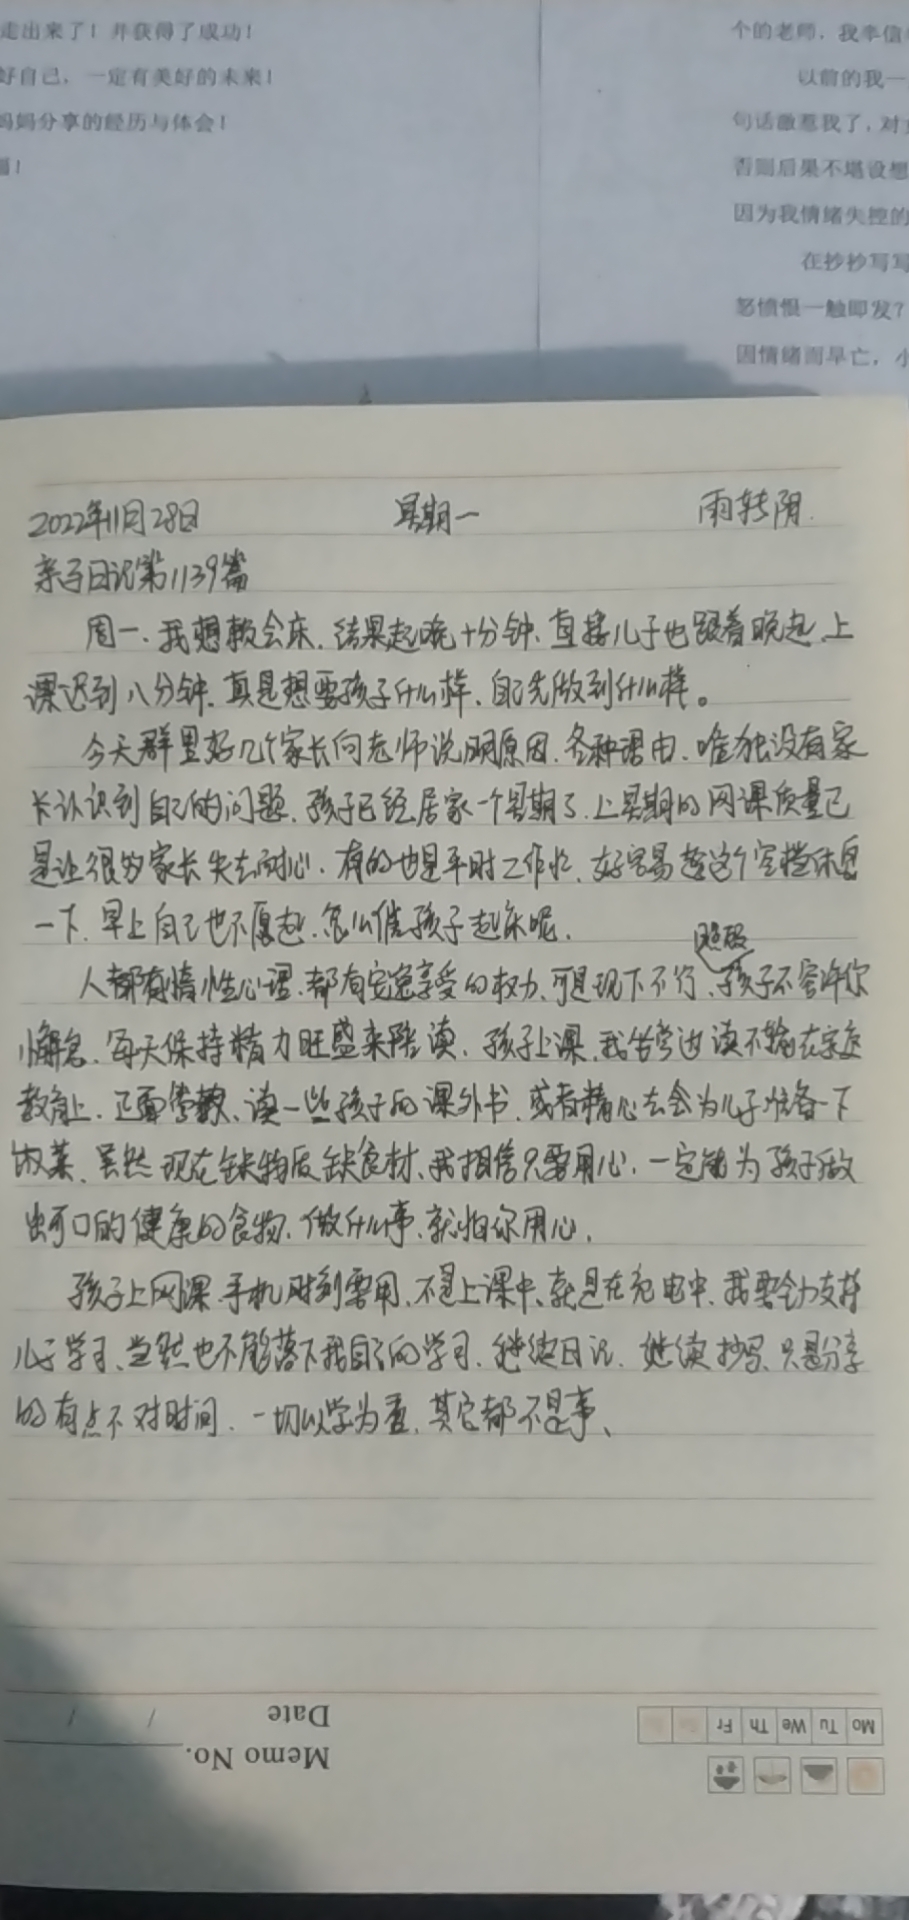 走出来了！并获得了成功！
好自己，一定有美好的未来！
妈妈分享的经历与体会！
福！
个的老师，我幸信
以前的我一
句话激惹我了，对
否则后果不堪设想
因为我情绪失控的
在抄抄写写
怒愤恨一触即发？
因情绪而早亡，小
2022年11月28日 星期一 雨转阴
亲子日记第1139篇
周一、我想赖会床、结果起晚十分钟、直接儿子也跟着晚起、上
课迟到八分钟、真是想要孩子什么样、自己先做到什么样。
今天群里好几个家长向老师说明原因、各种理由、唯独没有家
长认识到自己的问题、孩子已经居家一个星期了、上星期的网课质量已
是让很多家长失去耐心、有的也是平时工作忙、好容易趁这个空档休息
一下、早上自己也不愿起、怎么催孩子起床呢、
人都有惰性心理、都有安逸享受的权力、可是现下不行、孩子不容许你
懈怠、每天保持精力旺盛来陪读、孩子上课、我告旁边读不输在家庭
教育上、正面管教、读一些孩子的课外书、或者精心去会为儿子准备一下
饭菜、虽然现在缺物质缺食材、我相信只要用心、一定能为孩子做
出可口的健康的食物、做什么事、就怕你用心、
孩子上网课、手机时刻要用、不是上课中、就是在充电中、我要全力支持
儿子学习、当然也不能落下我自己的学习、继续日记、继续抄写、只是分享
的有点不对时间、一切以学为重、其它都不是事、
Memo No.
Date / /
Mo Tu We Th Fr Sa Su